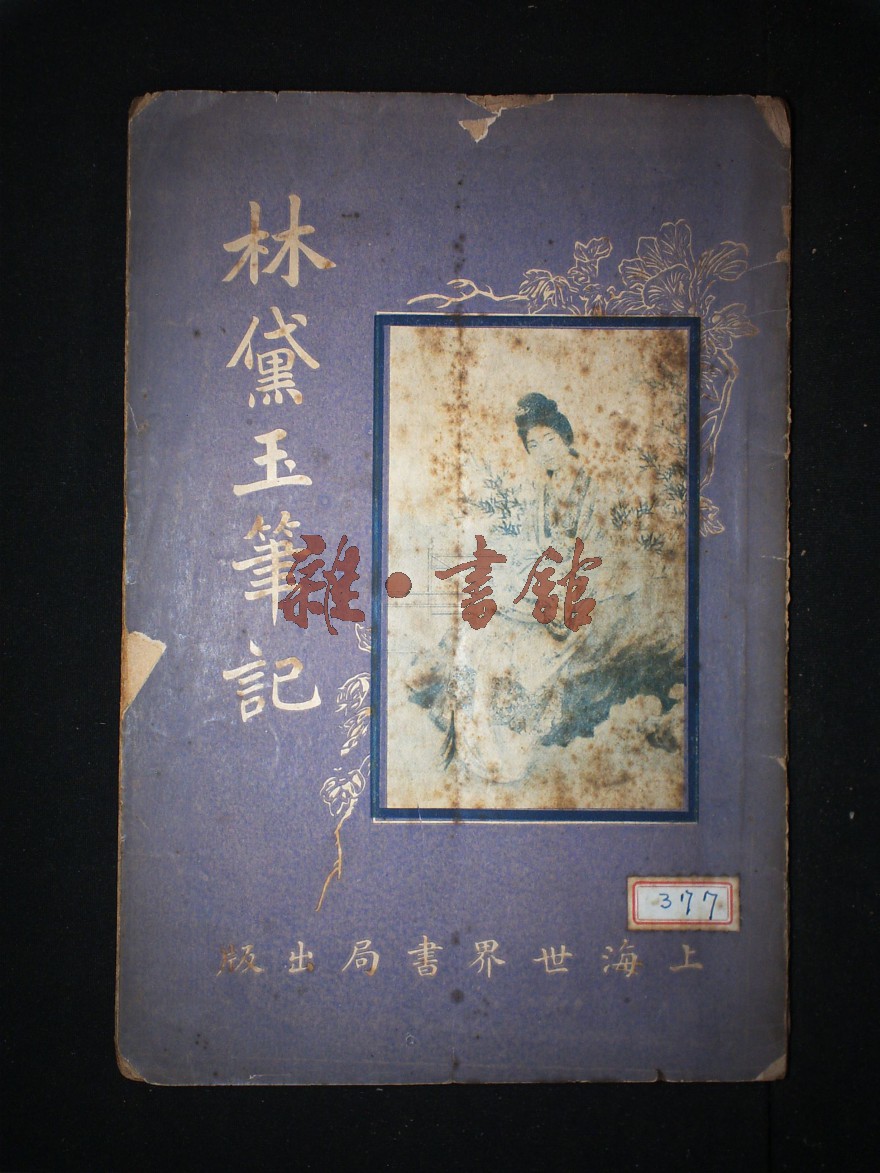 林黛玉筆記
雜·書館
377
上海世界書局出版